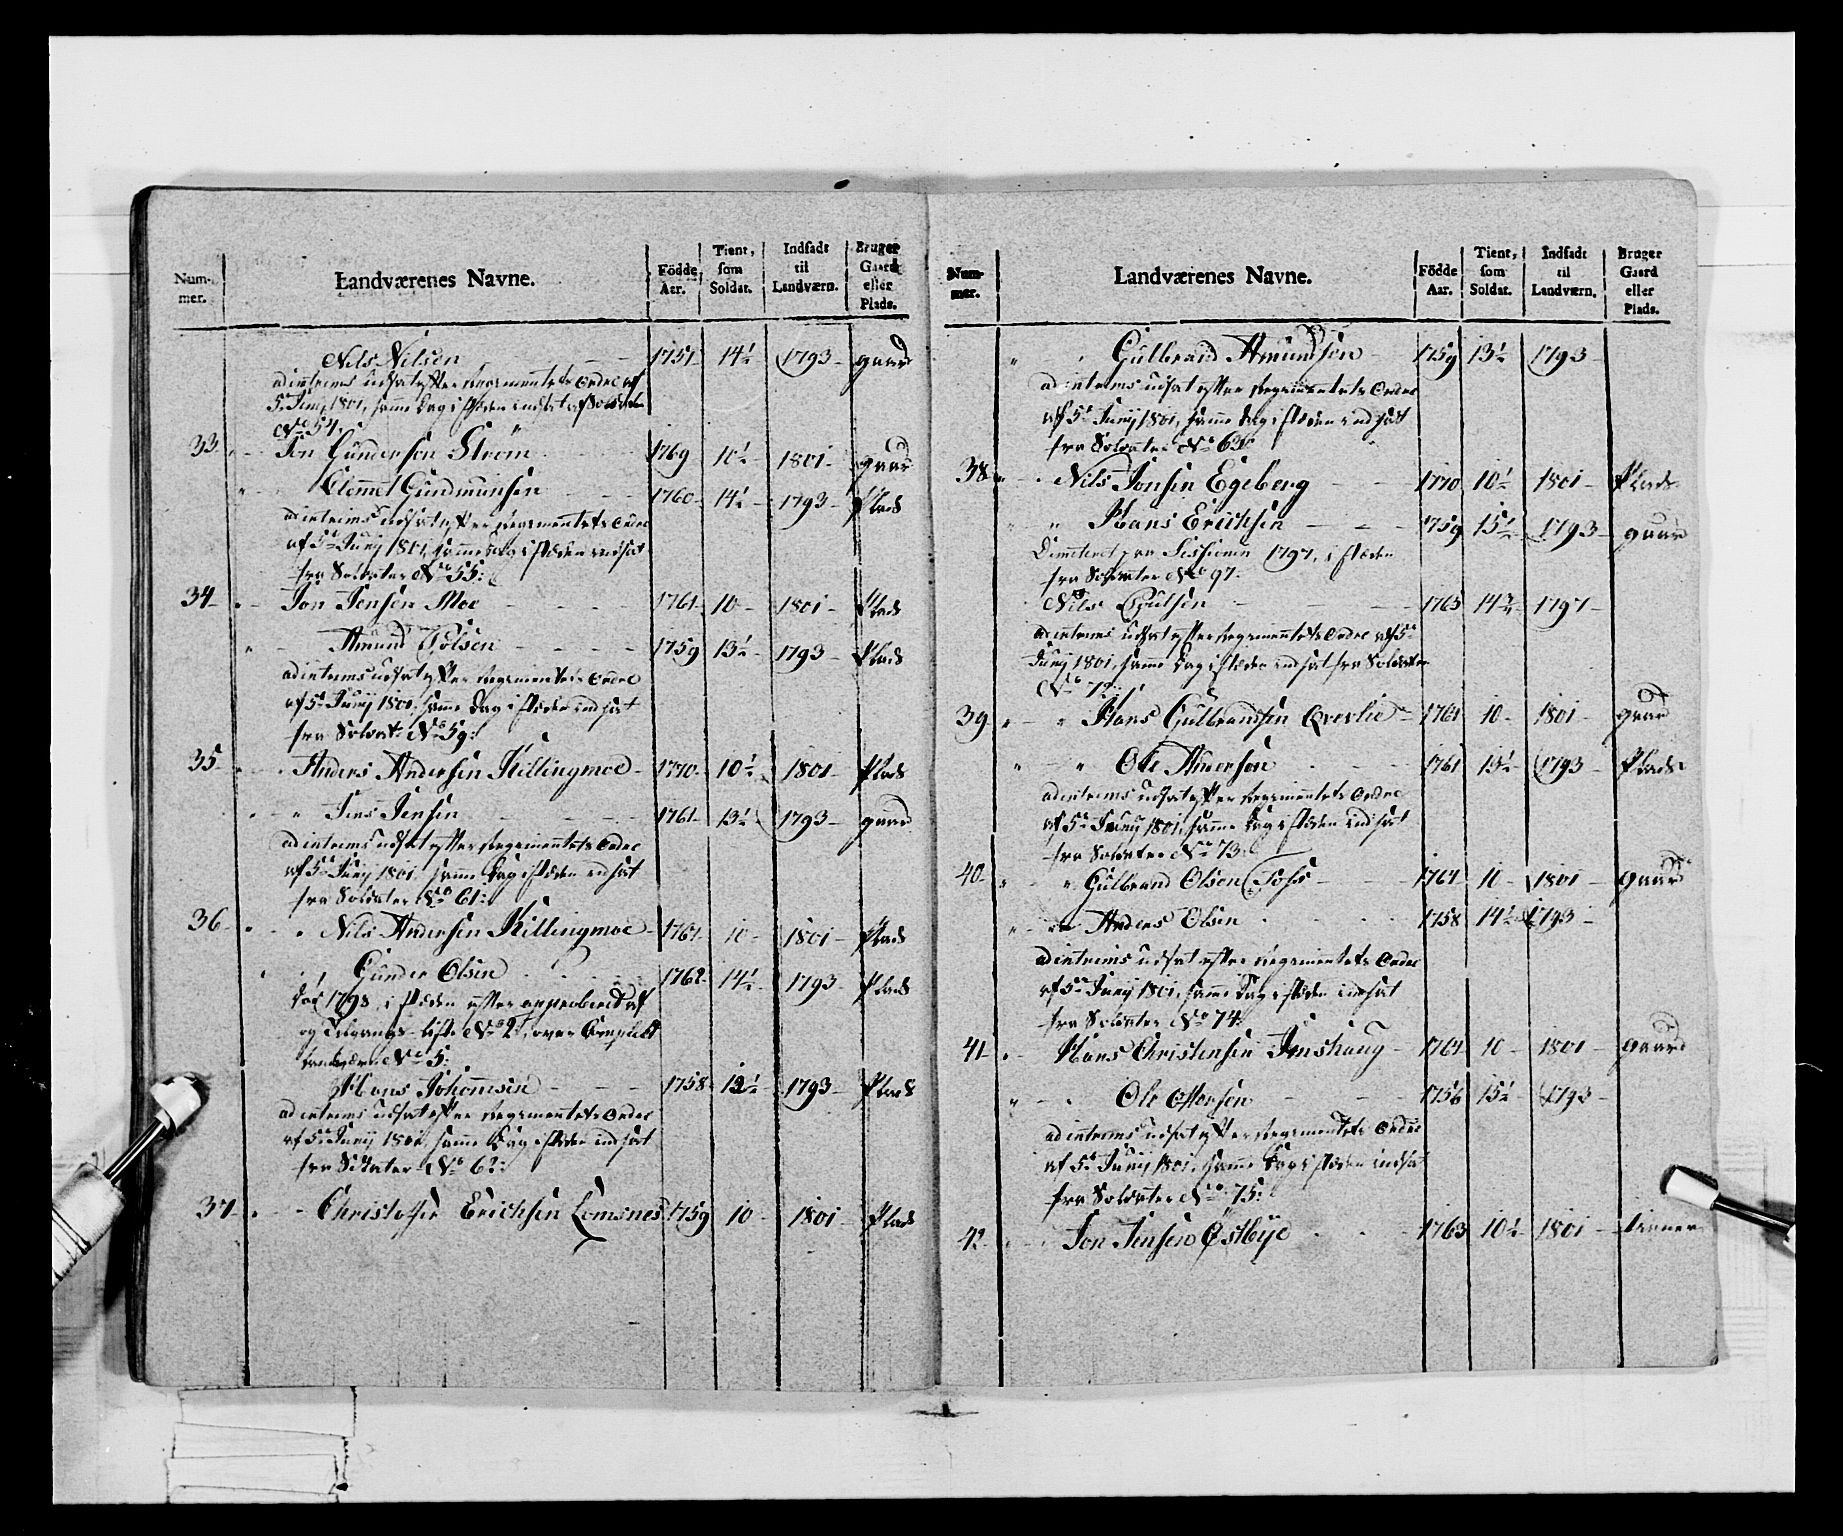 Num-
mer.
Landværenes Navne.
Födde
Aar.
Tient,
som
Soldat.
Indsadt
til
Landværn.
Bruger
Gaard
eller
Plads.
Nils Nilsen 1757 14½ 1793 gaard
ad interims udsat efter Regimentets Ordre af
5te Junij 1801, samme Dag i stæden indsat af Soldater
No 54.
33 Jon Gundersen Strøm 1769 10½ 1801 gaard
Clemet Gundmunsen 1760 14½ 1793 Plads
ad interims udsat efter Regimentets Ordre
af 5te Junij 1801, samme Dag i stæden indsat
fra Soldater No 55:
34 Jon Jensen Moe 1761 10 1801 Plads
Amund Polsen 1759 13½ 1793 Plads
ad interims udsat efter Regimentets Ordre
af 5te Junij 1801, samme Dag i stæden indsat
fra Soldat: No 59:
35 Anders Andersen Killingmoe 1770 10½ 1801 Plads
Jens Jensen 1761 13½ 1793 gaard
ad interims udsat efter Regimentets Ordre
af 5te Junij 1801, samme Dag i stæden indsat
fra Soldater No 61:
36 Nils Andersen Killingmoe 1761 10 1801 Plads
Gunder Olsen 1762 14½ 1793 Plads
1798, i stæden efter approberet af
og Tilgangs-liste No 2, over Complett
No 5:
Hans Johannsen 1758 12½ 1793 Plads
ad interims udsat efter Regimentets Ordre
af 5te Junij 1801, samme Dag i stæden indsat
fra Soldater No 62:
37 Christopher Erichsen Lomsnes 1759 10 1801 Plads
Num-
mer.
Landværenes Navne.
Födde
Aar.
Tient,
som
Soldat.
Indsadt
til
Landværn.
Bruger
Gaard
eller
Plads.
" " Gulbrand Amundsen 1759 13½ 1793
ad interims udsat efter Regimentets Ordre
af 5te Junij 1801, samme Dag i stæden indsat
fra Soldater No 65
38 Nils Jonsen Egeberg 1770 10½ 1801 Plads
" " Hans Erichsen 1759 15½ 1793 gaard
Dimitteret paa Sessionen 1797, i stæden
fra Soldater No 97.
Nils Poulsen 1763 14¾ 1797
ad interims udsat efter Regimentets Ordre af 5te
Junij 1801, samme Dag i stæden indsat fra Soldater
No 72:
39 " " Hans Gulbrandsen Qverlie 1761 10 1801 gaard
" " Ole Amersen 1761 13½ 1793 Plads
ad interims udsat efter Regimentets Ordre
af 5te Junij 1801, samme Dag i stæden indsat
fra Soldater No 73:
40 " " Gulbrand Olsen Foss 1761 10 1801 Gaard
" " Anders Olsen 1758 14½ 1793
ad interims udsat efter Regimentets Ordre
af 5te Junij 1801, samme Dag i stæden indsat
fra Soldater No 74:
41 Hans Christensen Imshaug 1761 10 1801 Gaard
" Ole Ottersen 1756 15½ 1793
ad interims udsat efter Regimentets Ordre
af 5te Junij 1801, samme Dag i stæden indsat
fra Soldater No 75:
42 Jon Jensen Østbye 1763 10½ 1801 tienner